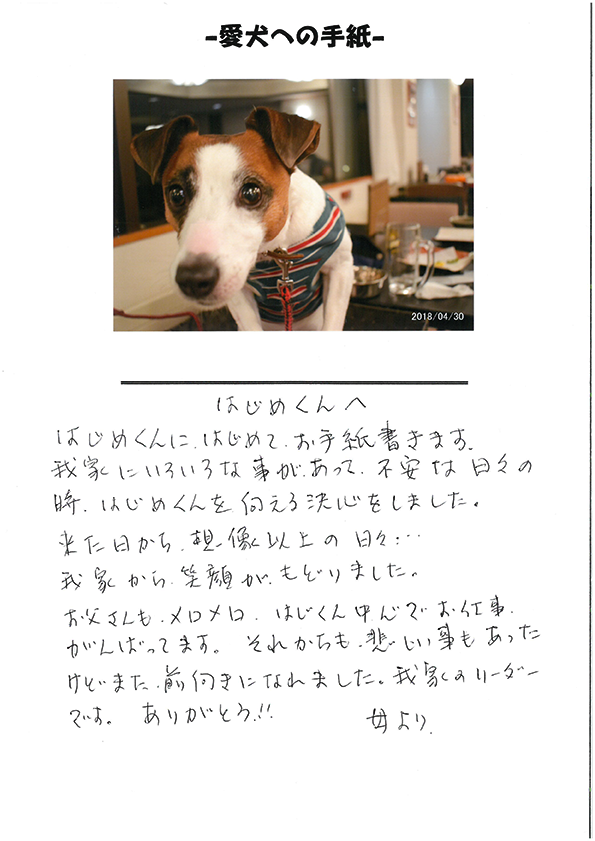 -愛犬への手紙-
2018/04/30
はじめくんへ
はじめくんに、はじめて、お手紙書きます。
我家にいろいろな事が、あって、不安な日々の
時、はじめくんを、向える決心をしました。
来た日から、想像以上の日々…
我家から、笑顔が、もどりました。
お父さんも、メロメロ、はじくん中心でお仕事、
がんばってます。それからも、悲しい事もあった
けどまた、前向きになれました。我家のリーダー
です。ありがとう!!
母より、